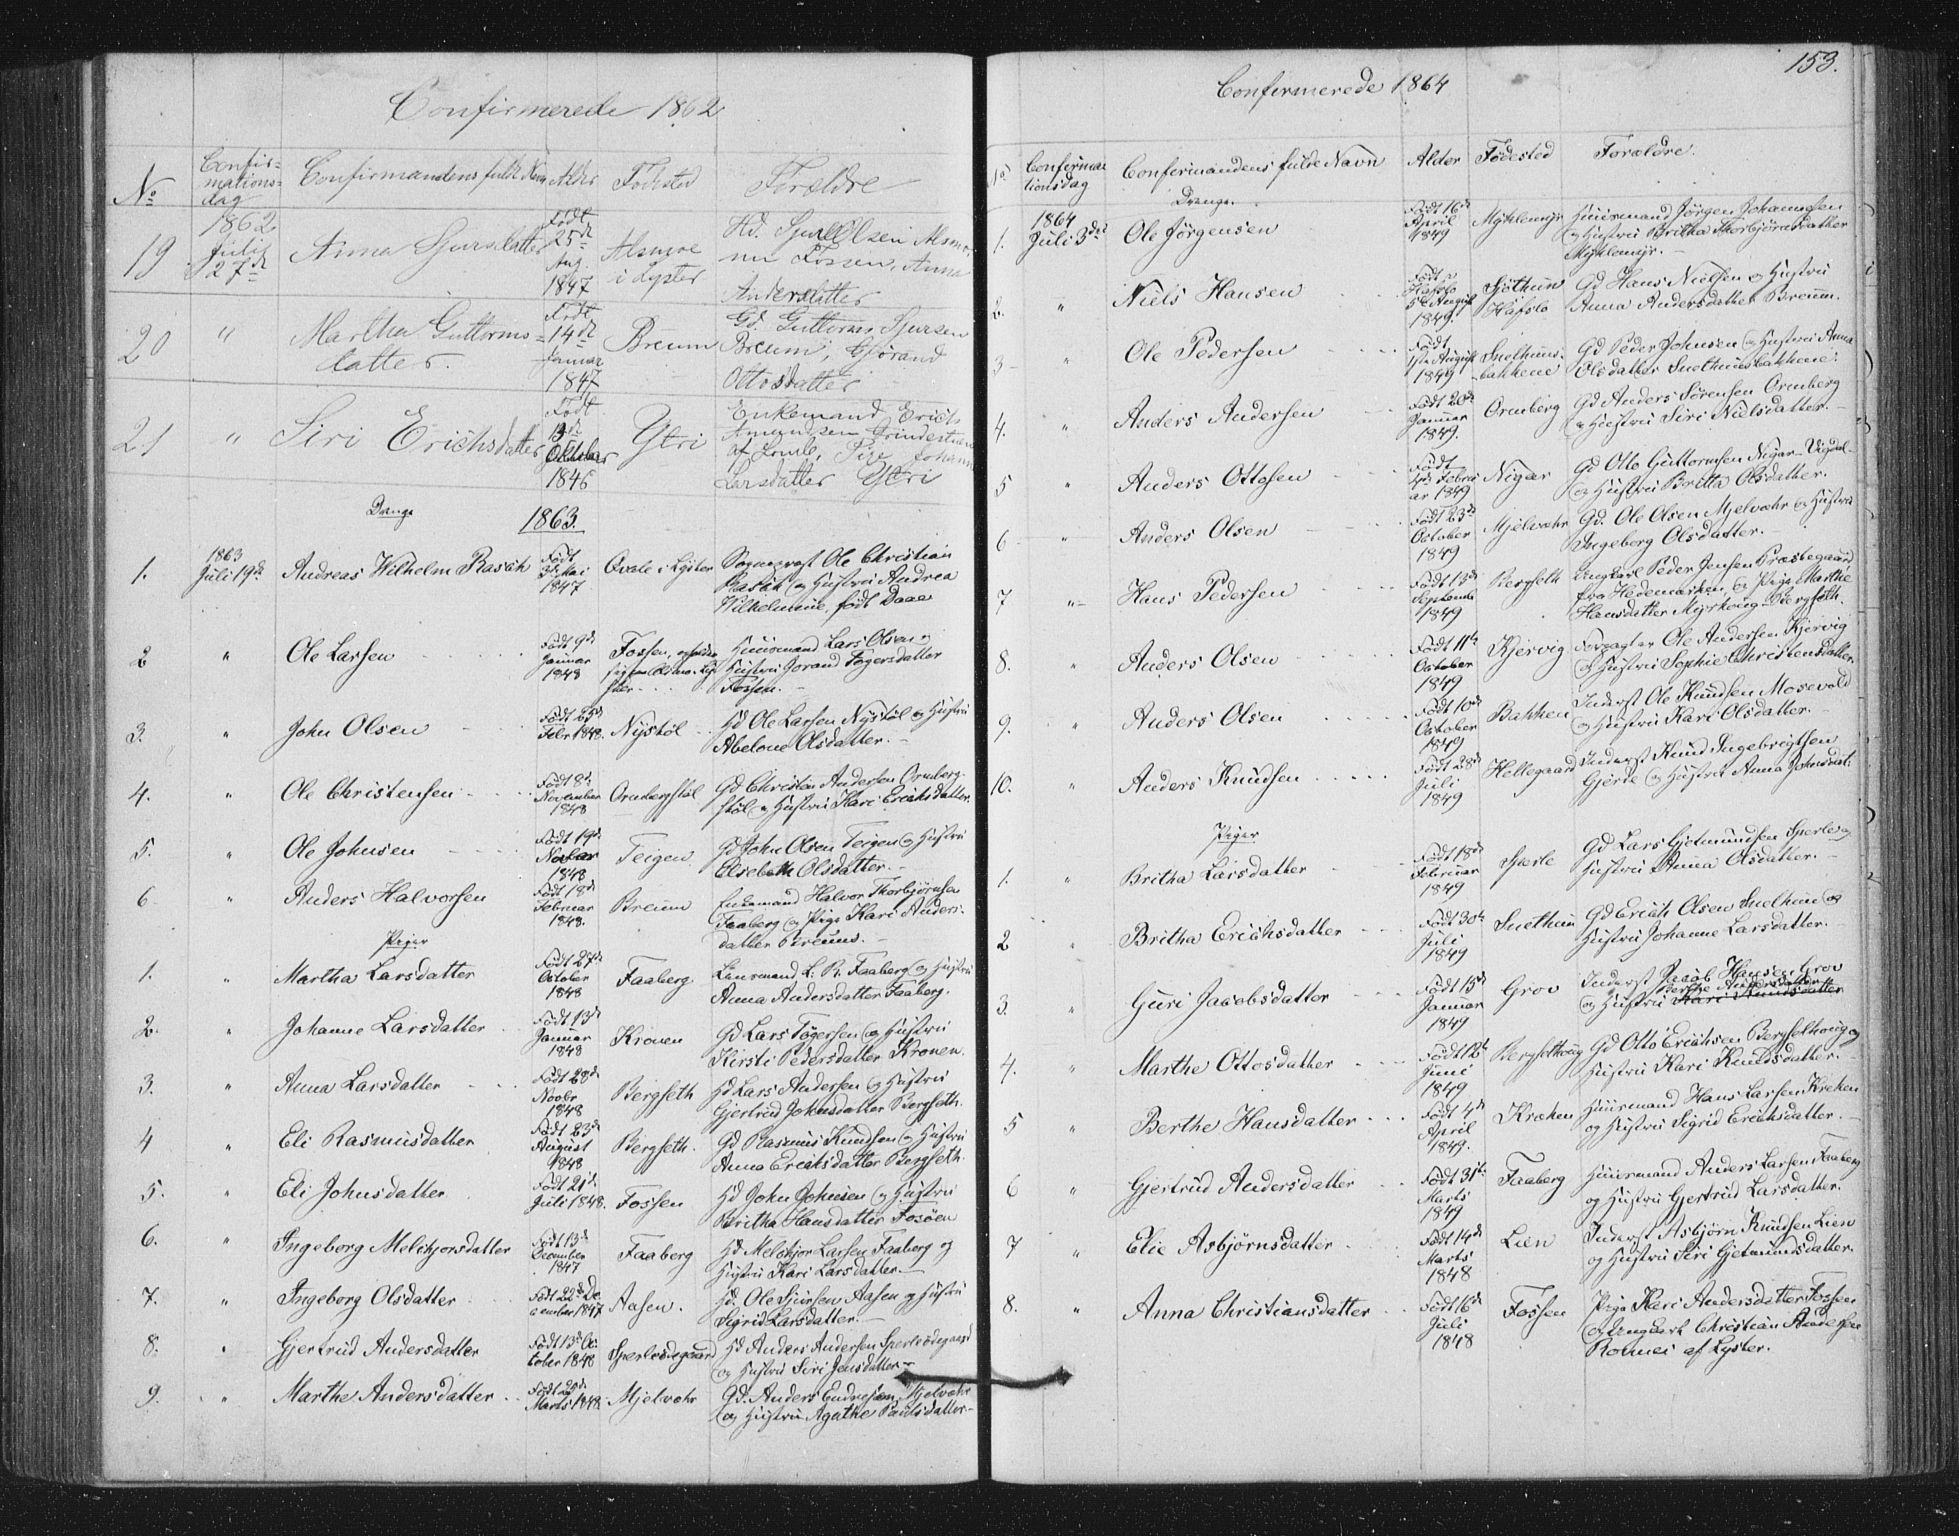 Confirmerede 1862
No
Confir-
mations-
dag
Confirmandens fulde Navn
Alder
Fødested
Forældre
19
1862
Julii
27de
Anna Sjursdatter
Født
25de
Aug.
1847
Alsmoe
i Lyster
Hd. Sjur Olsen Alsmo,
Fossen, Anna
Andersdatter
20
"
Martha Guttorms-
datter.
Født
14de
Januar
1847
Breum
Gd. Guttorm Sjursen
Breum, Gjørand
Ottosdatter
21
"
Siri Erichsdatter
Født
13de
Oktober
1846
Ytri
Enkemand Erich
Amundsen
af Lomb, Pige Johanne
Larsdatter Ytri
Drenge
1863.
1.
1863
Juli 19de
Andreas Wilhelm Rasch
Født
3de Mai
1847
Qvale i Lyster
Sognepræst Ole Christian
Rasch og Hustru Andrea
Wilhelmine, født Daae
2
"
Ole Larsen
Født 9de
Januar
1848
Fossen,
Huusmand Lars Olsen og
Hustru Jorand Tøgersdatter
Fossen.
3.
"
John Olsen
Født 25de
Febr 1848.
Nystøl
Hd Ole Larsen Nystøl og Hustru
Abelone Olsdatter.
4.
"
Ole Christensen
Født 8de
November
1848
Ormbergstøl
Gd Christen Andersen Ormberg-
støl og Hustru Kari Erichsdatter.
5.
"
Ole Johnsen
Født 19de
1848
Teigen
Gd John Olsen Teigen og Hustru
Elsebeth Olsdatter.
6
"
Anders Halvorsen
Født 18de
Februar
1848.
Breum
Enkemand Halvor Thorbjørnsen
Faaberg og Pige Kari Anders-
datter Breum.
Piger
1.
"
Martha Larsdatter
Født 27de
October
1848
Faaberg
Lensmand L. R. Faaberg og Hustru
Anna Andersdatter Faaberg.
2.
"
Johanne Larsdatter
Født 13de
Januar
1848
Kronen
Gd Lars Tøgersen og Hustru
Kirsti Pedersdatter Kronen.
3.
"
Anna Larsdatter
Født 28de
Novbr
1848
Bergseth
Hd Lars Andersen og Hustru
Gjertrud Johnsdatter Bergseth.
4
"
Eli Rasmusdatter
Født 23de
August
1848
Bergseth.
Gd Rasmus Knudsen og Hustru
Anna Erichsdatter Bergseth.
5.
"
Eli Johnsdatter
Født 21de
Juli 1848.
Fossen
Hd John Johnsen og Hustru
Britha Hansdatter Fosøen
6.
"
Ingeborg Melchjorsdatter
Født 13de
December
1847
Faaberg
Hd Melchjor Larsen Faaberg og
Hustru Kari Larsdatter.
7.
"
Ingeborg Olsdatter
Født 22de De-
cember 1847
Aasen.
Hd. Ole Sjursen Aasen og Hustru
Sigrid Larsdatter.
8.
"
Gjertrud Andersdatter
Født 13de Oc-
tober 1848
Sperleødegaard
Hd Anders Andersen Sperleødegaard
og Hustru Siri Jensdatter
9.
"
Marthe Andersdatter
Født 20de
Marts 1848.
Mjelvæhr
Gd. Anders Endresen Mjelvæhr
og Hustru Agathe Paulsdatter.
153.
Confirmerede 1864
No
Confirma-
tionsdag
Confirmandens fulde Navn
Alder
Fødested
Forældre.
Drenge.
1.
1864
Juli 3die
Ole Jørgensen
Født 16de
April
1849
Myklemyr
Huusmand Jørgen Johannesen
og Hustru Britha Thorbjørnsdatter
Myklemyr.
2.
"
Niels Hansen
Født i
Hafslo
5te August
1849.
Sjøthun
Hafslo
Gd Hans Nielsen og Hustru
Anna Andersdatter Breum.
3
"
Ole Pedersen
Født
1ste August
1849
Snethuns-
bakkene
Gd Peder Johnsen og Hustru Anna
Olsdatter Snethunsbakkene.
4.
"
Anders Andersen
Født 20de
Januar
1849.
Ormberg
Gd Anders Sørensen Ormberg
og Hustru Siri Nielsdatter.
5
"
Anders Ottosen
Født
4de Febru-
ar 1849
Nigar
Gd Otto Guttormsen Nigar-Vigdal
og Hustru Britta Olsdatter.
6
"
Anders Olsen
Født 23de
October
1849
Mjelvæhr
Gd. Ole Olsen Mjelvæhr og Hustru
Ingeborg Olsdatter.
7
"
Hans Pedersen
Født 13de
Septembr
1849
Bergseth
Ungkarl Peder Jensen Præstegaard
fra Hedemarken, og Pige Marthe
Hansdatter Myrhoug-Bergseth.
8.
"
Anders Olsen
Født 11te
October
1849
Kjervig
Forpagter Ole Andersen Kjervig
og Hustru Sophie Christensdatter.
9.
"
Anders Olsen
Født 10de
October
1849
Bakken
Inderst Ole Knudsen Mosevold
og Hustru Kari Olsdatter.
10.
"
Anders Knudsen
Født 28de
Juli
1849
Hellegaard
Inderst Knud Ingebrigtsen
Gjerde og Hustru Anna Johnsdat:
Piger
1.
"
Britha Larsdatter
Født 18de
Februar
1849
Sperle
Gd Lars Gjetmundsen Sperle og
Hustru Anna Olsdatter.
2
"
Britha Erichsdatter
Født 30te
Juli
1849
Snethun
Gd Erich Olsen Snethun og
Hustru Johanne Larsdatter.
3.
"
Guri Jacobsdatter
Født 15de
Januar
1849
Grov
Inderst Jacob Hansen Grov
Berthe Andersdatter
og Hustru Kari Knudsdatter
4.
"
Marthe Ottosdatter
Født 12te
Juni
1849
Bergsethoug
Gd Otto Erichsen Bergsethoug og
Hustru Kari Knudsdatter.
5
"
Berthe Hansdatter
Født 4de
April
1849.
Kreken
Huusmand Hans Larsen Kreken
og Hustru Sigrid Erichsdatter.
6
"
Gjertrud Andersdatter
Født 31te
Marts
1849
Faaberg
Huusmand Anders Larsen Faaberg
og Hustru Gjertrud Larsdatter.
7
"
Elie Asbjørnsdatter
Født 14de
Marts
1848
Lien
Inderst Asbjørn Knudsen Lien
og Hustru Siri Gjetmundsdatter.
8.
"
Anna Christiansdatter
Født 16de
Juli
1848
Fossen
Pige Kari Andersdatter Fossen
og Ungkarl Christian Andersen
Romei af Lyster.